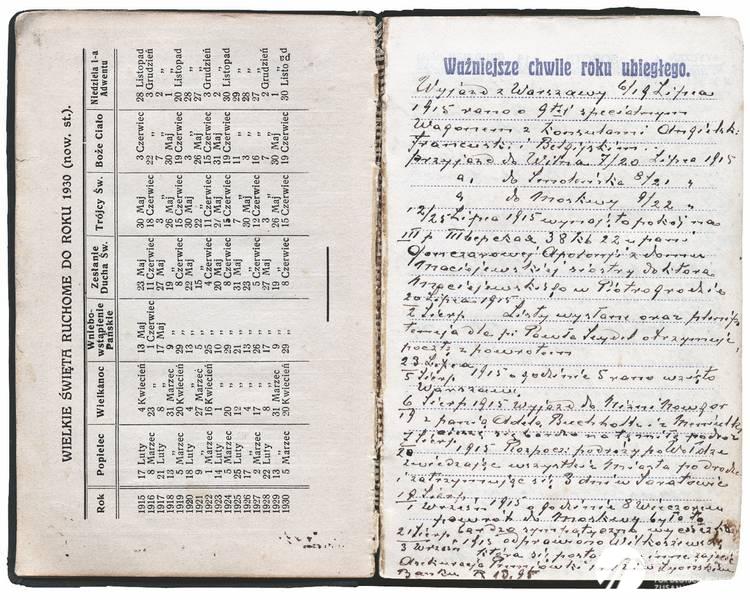 WIELKIE ŚWIĘTA RUCHOME DO ROKU 1930 (now. st.).
Rok Popielec Wielkanoc Wniebo-wstąpienie Pańskie Zesłanie Ducha Św. Trójcy Św. Boże Ciało Niedziela 1-a Adwentu
1915 17 Luty 4 Kwiecień 13 Maj 23 Maj 30 Maj 3 Czerwiec 28 Listopad
1916 8 Marzec 23 „ 1 Czerwiec 11 Czerwiec 18 Czerwiec 22 „ 3 Grudzień
1917 21 Luty 8 „ 17 Maj 27 Maj 3 „ 7 „ 2 „
1918 13 „ 31 Marzec 9 „ 19 „ 26 Maj 30 Maj 1 „
1919 5 Marzec 20 Kwiecień 29 „ 8 Czerwiec 15 Czerwiec 19 Czerwiec 30 Listopad
1920 18 Luty 4 „ 13 „ 23 Maj 30 Maj 3 „ 28 „
1921 9 „ 27 Marzec 5 „ 15 „ 22 „ 26 Maj 27 „
1922 1 Marzec 16 Kwiecień 25 „ 4 Czerwiec 11 Czerwiec 15 Czerwiec 3 Grudzień
1923 14 Luty 1 „ 10 „ 20 Maj 27 Maj 31 Maj 2 „
1924 5 Marzec 20 „ 29 „ 8 Czerwiec 15 Czerwiec 19 Czerwiec 30 Listopad
1925 25 Luty 12 „ 21 „ 31 Maj 7 „ 11 „ 29 „
1926 17 „ 4 „ 13 „ 23 „ 30 Maj 3 „ 28 „
1927 2 Marzec 17 „ 26 „ 5 Czerwiec 12 Czerwiec 16 „ 27 „
1928 22 Luty 8 „ 17 „ 27 Maj 3 „ 7 „ 2 Grudzień
1929 13 „ 31 Marzec 9 „ 19 „ 26 Maj 30 Maj 1 „
1930 5 Marzec 20 Kwiecień 29 „ 8 Czerwiec 15 Czerwiec 19 Czerwiec 30 Listopad
Ważniejsze chwile roku ubiegłego.
Wyjazd z Warszawy 6/19 Lipca
1915 rano o 9tej specialnym
Wagonem z Konsulami Angielski
francuski i Belgijskim
przyjazd do Wilna 7/20 Lipca 1915
do Smoleńska 8/21 „
do Moskwy 9/22 „
12/25 Lipca 1915 wynajęto pokój na
III p. 38 22 u pani
Gonczarowej Apolonji z domu
Maciejewskiej siostry doktora
Maciejewskiego w Piotrogrodzie
20 Lipca 1915
2 Sierp Listy wysłane oraz
dla p. Pawła otrzymuję
pocztą z powrotem
23 Lipca
5 Sierp 1915 o godzinie 5 rano wzięto
Warszawę
6 Sierp 1915 wyjazd do Niżni Nowgor
19 z panią Adelą Buchholtz i
7 Sierp
20 1915 Rozpocz. podróży po Wołdze
zwiedzając wszystkie miasta po drodze
i zatrzymując się 3 dni w Saratowie
19 Sierp
1 Wrzesn 1915 o godzinie 8 wieczorem
powrót do Moskwy była to
bardzo sympatyczna wycieczka
21 Sierp 1915 odprawiono
3 Wrzesn która się inne
Banku R 13,95